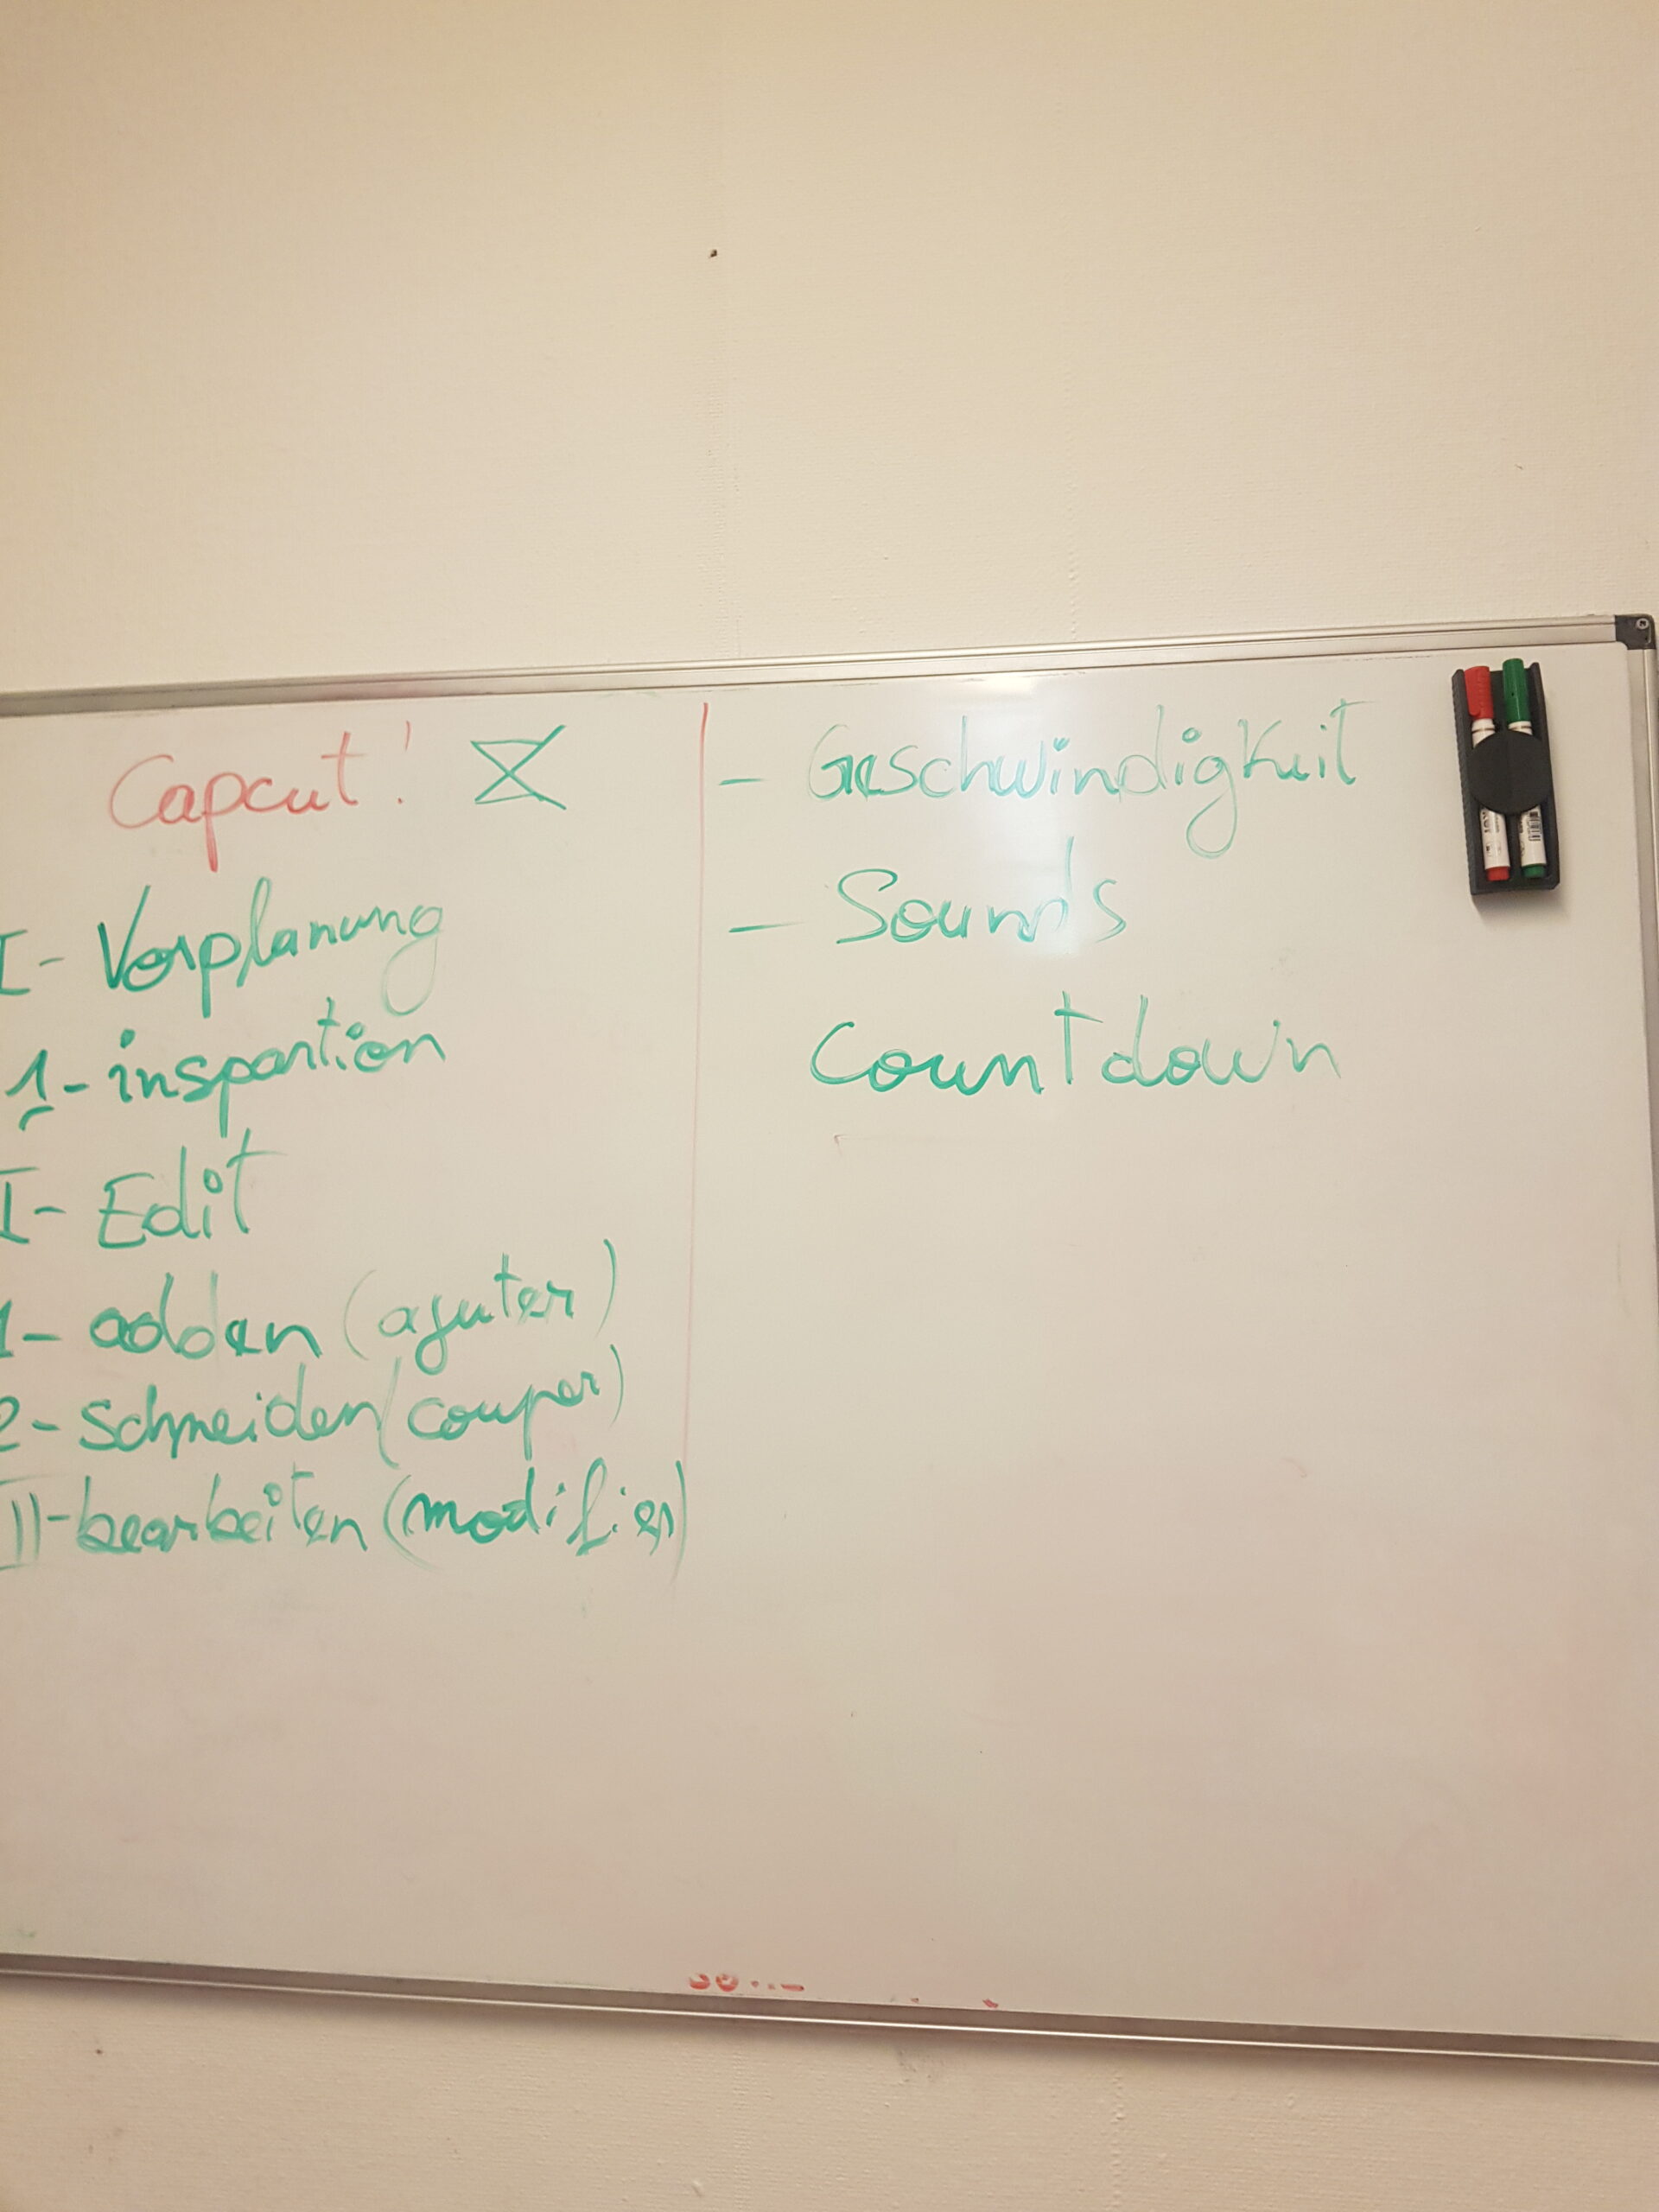 Capcut!
I- Vorplanung
1- inspartion
I- Edit
1- adden (ajuter)
2- schneiden (couper)
II- bearbeiten (modifier)
- Geschwindigkeit
- Sounds
Countdown